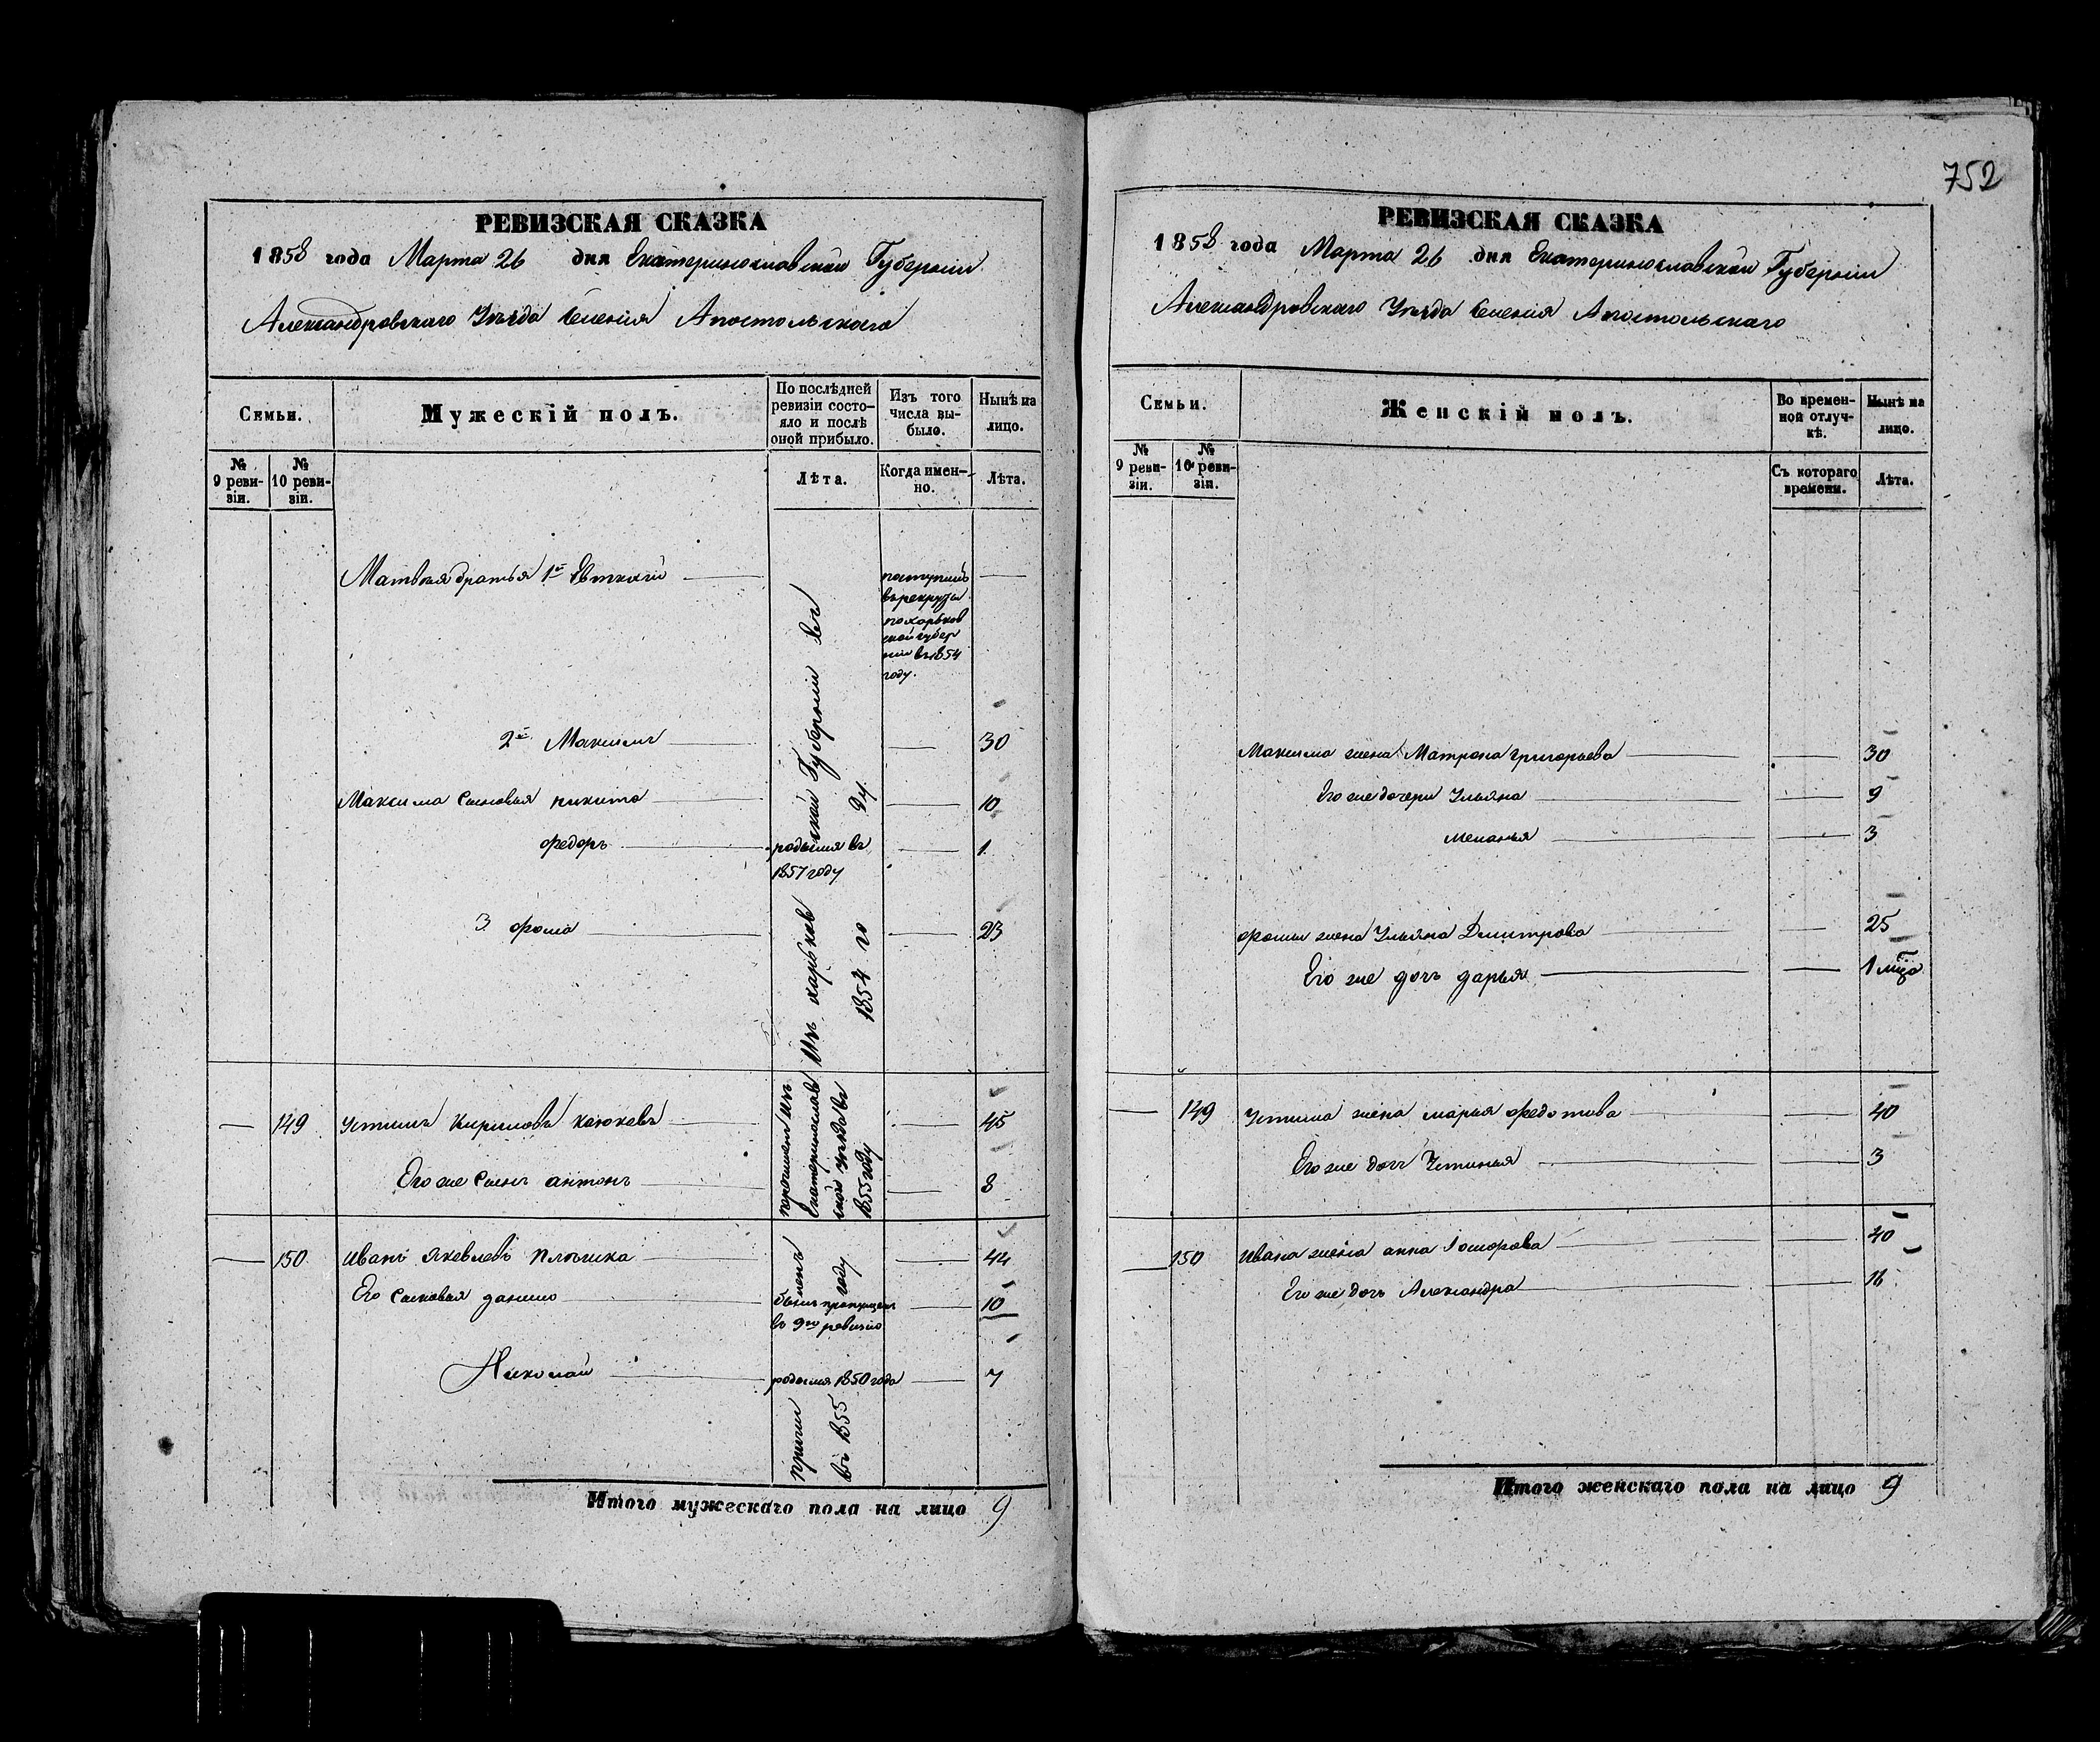 752
РЕВИЗСКАЯ СКАЗКА
1858 года Марта 26 дня Екатеринославской Губерніи
Александровскаго Уѣзда Селенія Апостольскаго
Семьи.
Мужескій полъ.
По послѣдней ревизіи состояло и послѣ оной прибыло.
Изъ того числа выбыло.
Нынѣ на лицо.
№ 9 ревизіи.
№ 10 ревизіи.
Лѣта.
Когда именно.
Лѣта.
Матвея братья 1й
поступилъ
въ рекруты
по харьков
ской губер
ніи въ 1854
году.
2й Максимъ 30
Максима сыновья никита 10
федоръ родился въ 1 
1857 году
3 фома 23
Изъ харьковской Губерніи въ
1854 году
149 устимъ Кириловъ Каюковъ 45
Его же сынъ антонъ 8
причисленъ изъ
Екатеринослав
ской уѣзда въ
1855 году
150 иванъ яковлевъ 44
Его сыновья данило былъ пропущенъ 10
въ 9ю ревизію
Николай родился 1850 года 7
причисленъ
въ 1855 году
Итого мужескаго пола на лицо 9
РЕВИЗСКАЯ СКАЗКА
1858 года Марта 26 дня Екатеринославской Губерніи
Александровскаго Уѣзда Селенія Апостольскаго
Семьи.
Женскій полъ.
Во временной отлучкѣ.
Нынѣ на лицо.
№ 9 ревизіи.
№ 10 ревизіи.
Съ котораго времени.
Лѣта.
Максима жена Матрона григорьева 30
Его же дочери Ульяна 9
меланья 3
фомы жена Ульяна Дмитрова 25
Его же дочь дарья 1 мца
149 Устима жена марья федотова 40
Его же дочь Устинья 3
150 ивана жена анна 40
Его же дочь Александра 16
Итого женскаго пола на лицо 9